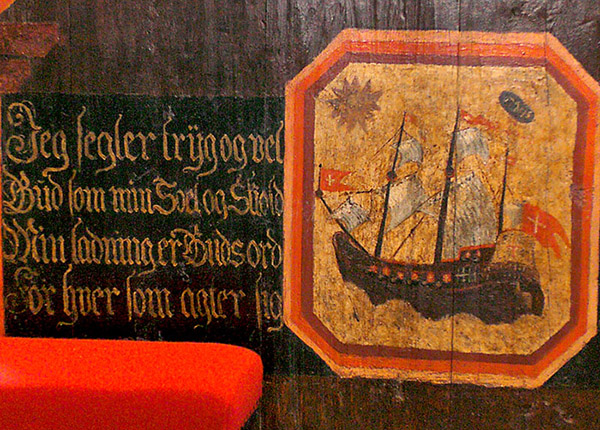 Jeg segler tryg og vel
Gud som min Soel og Skiold
Min ladning er Guds ord
For hver som agter sig